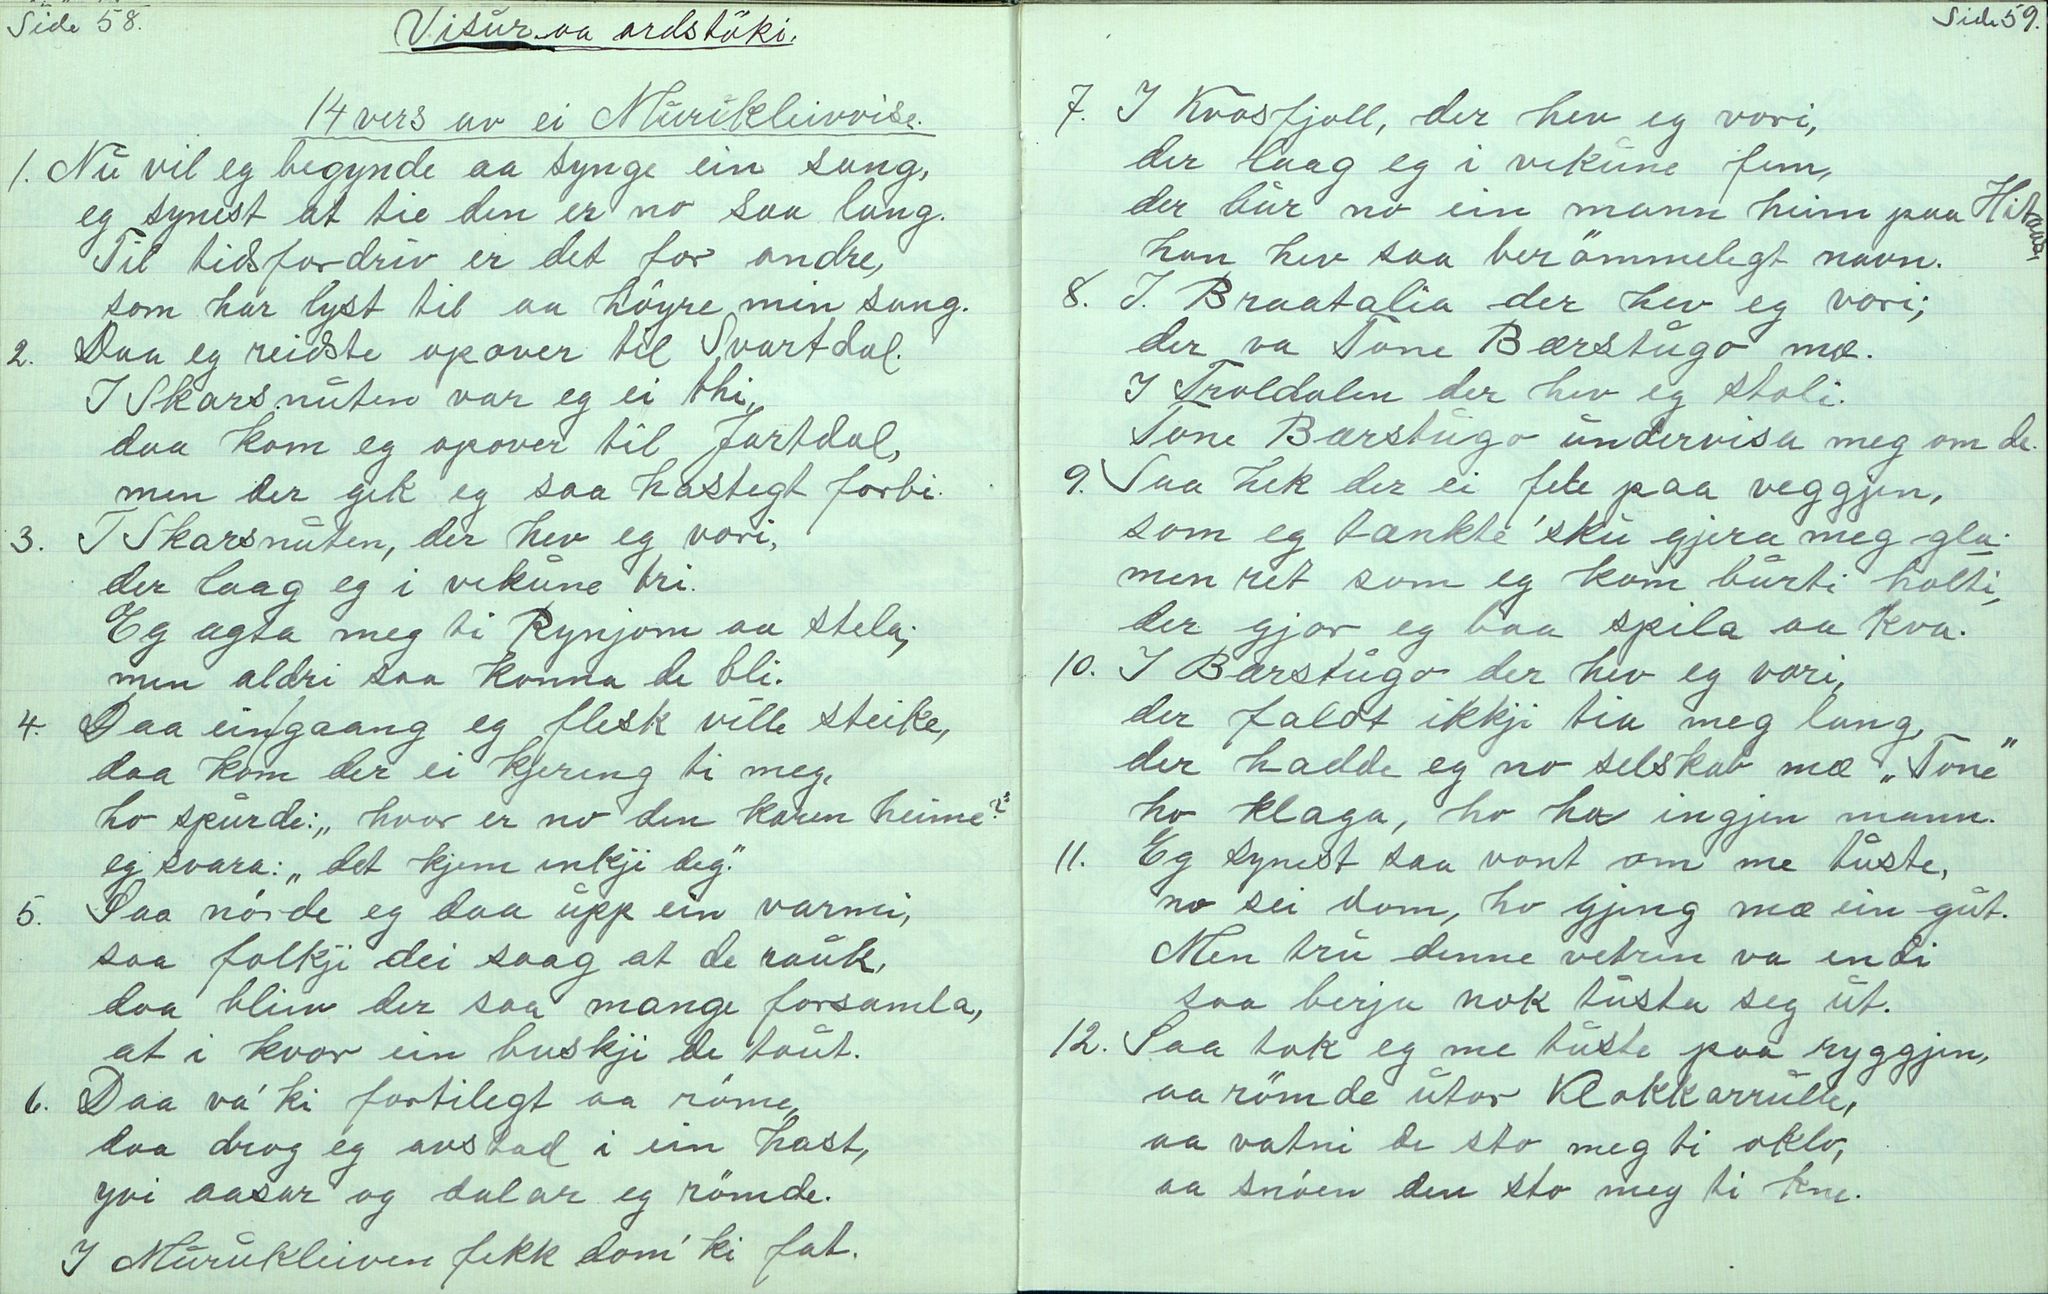 Side 58.
Visur aa ordstöki.
14 vers av ei Murukleivvise.
1. Nu vil eg begynde aa synge ein sang,
eg synest at tie den er no saa lang.
Til tidsfordriv er det for andre,
som har lyst til aa höyre min sang.
2. Daa eg reidste opover til Svartdal.
I Skarsnuten var eg ei thi,
daa kom eg opover til Jartdal,
men der gek eg saa hastegt forbi.
3. I Skarsnuten, der hev eg vori,
der laag eg i vekune tri.
Eg agta meg ti Rynjom aa stela;
men aldri saa konna de bli.
4. Daa ein gaang eg flesk ville steike,
daa kom der ei kjering ti meg,
ho spurde: „hvor er no den karen heime?"
eg svara: „det kjem inkji deg."
5. Saa nörde eg daa upp ein varmi,
saa folkji dei saag at de rauk,
daa bleiv der saa mange forsamla,
at i kvar ein buskji de taut.
6. Daa va' ki fortilegt aa röme,
daa drog eg avstad i ein hast,
yvi aasar og dalar eg römde.
I Murukleiven fekk dom' ki fat.
Side 59.
7. I Kvosfjoll, der hev eg vori,
der laag eg i vekune fem,
der bur no ein mann heim paa Hitaas
han hev saa berömmelegt navn.
8. I. Braatalia der hev eg vori;
der va Tone Bærstugo mæ.
I Troldalen der hev eg stoli.
Tone Bærstugo undervisa meg om de.
9. Saa hek der ei fele paa veggjen,
som eg tænkte 'sku gjera meg gla.
men ret som eg kom burti holti,
der gjor eg baa spila aa kva.
10. I Bærstugo der hev eg vori,
der faldt ikkji tia meg lang,
der hadde eg no selskab mæ „Tone"
ho klaga, ho ha ingjen mann.
11. Eg synest saa vont om me tuste,
no sei dom, ho gjeng mæ ein gut.
Men tru denne vetren va endi
saa berju nok tusta seg ut.
12. Saa tok eg me tuste paa ryggjen,
aa römde utor Klokkarrulle,
aa vatni de sto meg ti oklo,
aa snöen den sto meg ti kne.